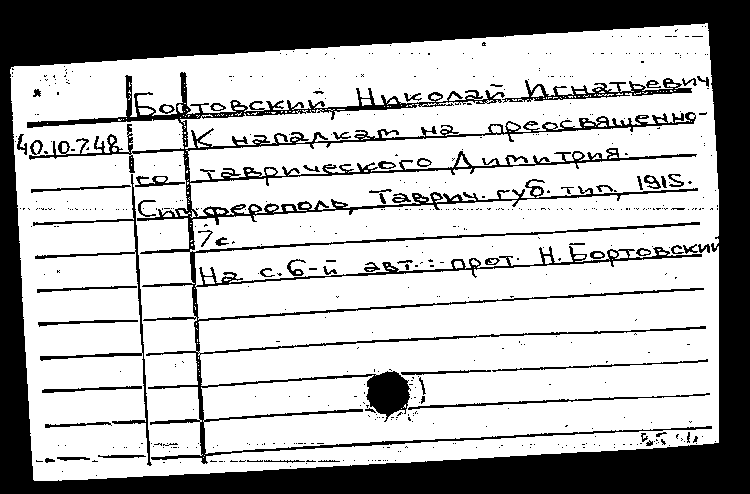 Бортовский, Николай Игнатьевич
40.10.7.48. К нападкам на преосвященно-
го таврического Димитрия.
Симферополь, Таврич. губ. тип, 1915.
7с.
На с. 6-й авт.: прот. Н. Бортовский